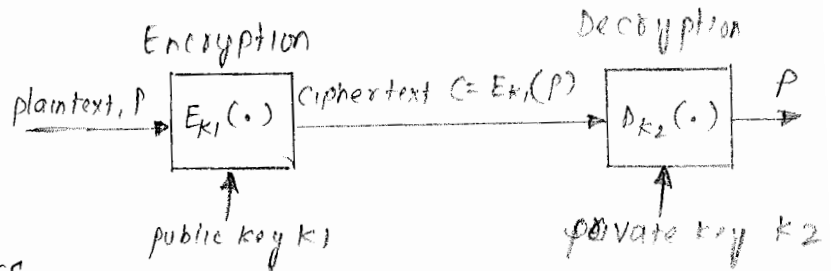 Encryption
Decryption
plaintext, P
E_K1 (·)
ciphertext C = E_K1(P)
D_K2 (·)
P
public key K1
private key K2